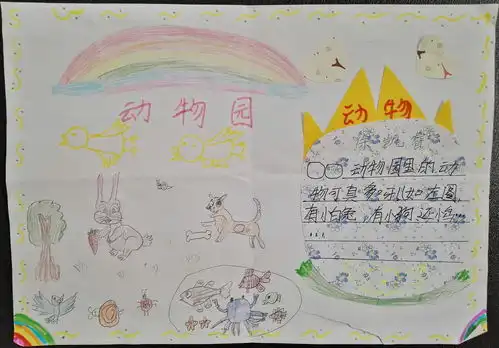 动物园
动物
动物园里的动
物可真多呀!如左图,
有小白兔,有小狗还有小鸟……